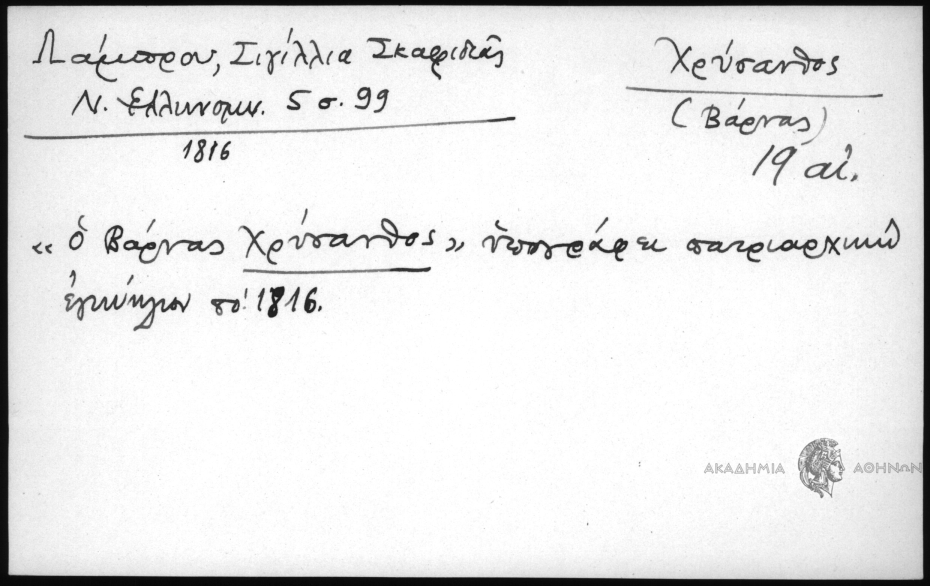 Λάμπρου, Σιγίλλια Σκαφιδιᾶς
Ν. Ἑλληνομν. 5 σ. 99
1816
Χρύσανθος
(Βάρνας)
19 αἰ.
«ὁ Βάρνας Χρύσανθος» ὑπογράφει πατριαρχικὸν
ἐγκύκλιον τοῦ 1816.
ΑΚΑΔΗΜΙΑ ΑΘΗΝΩΝ